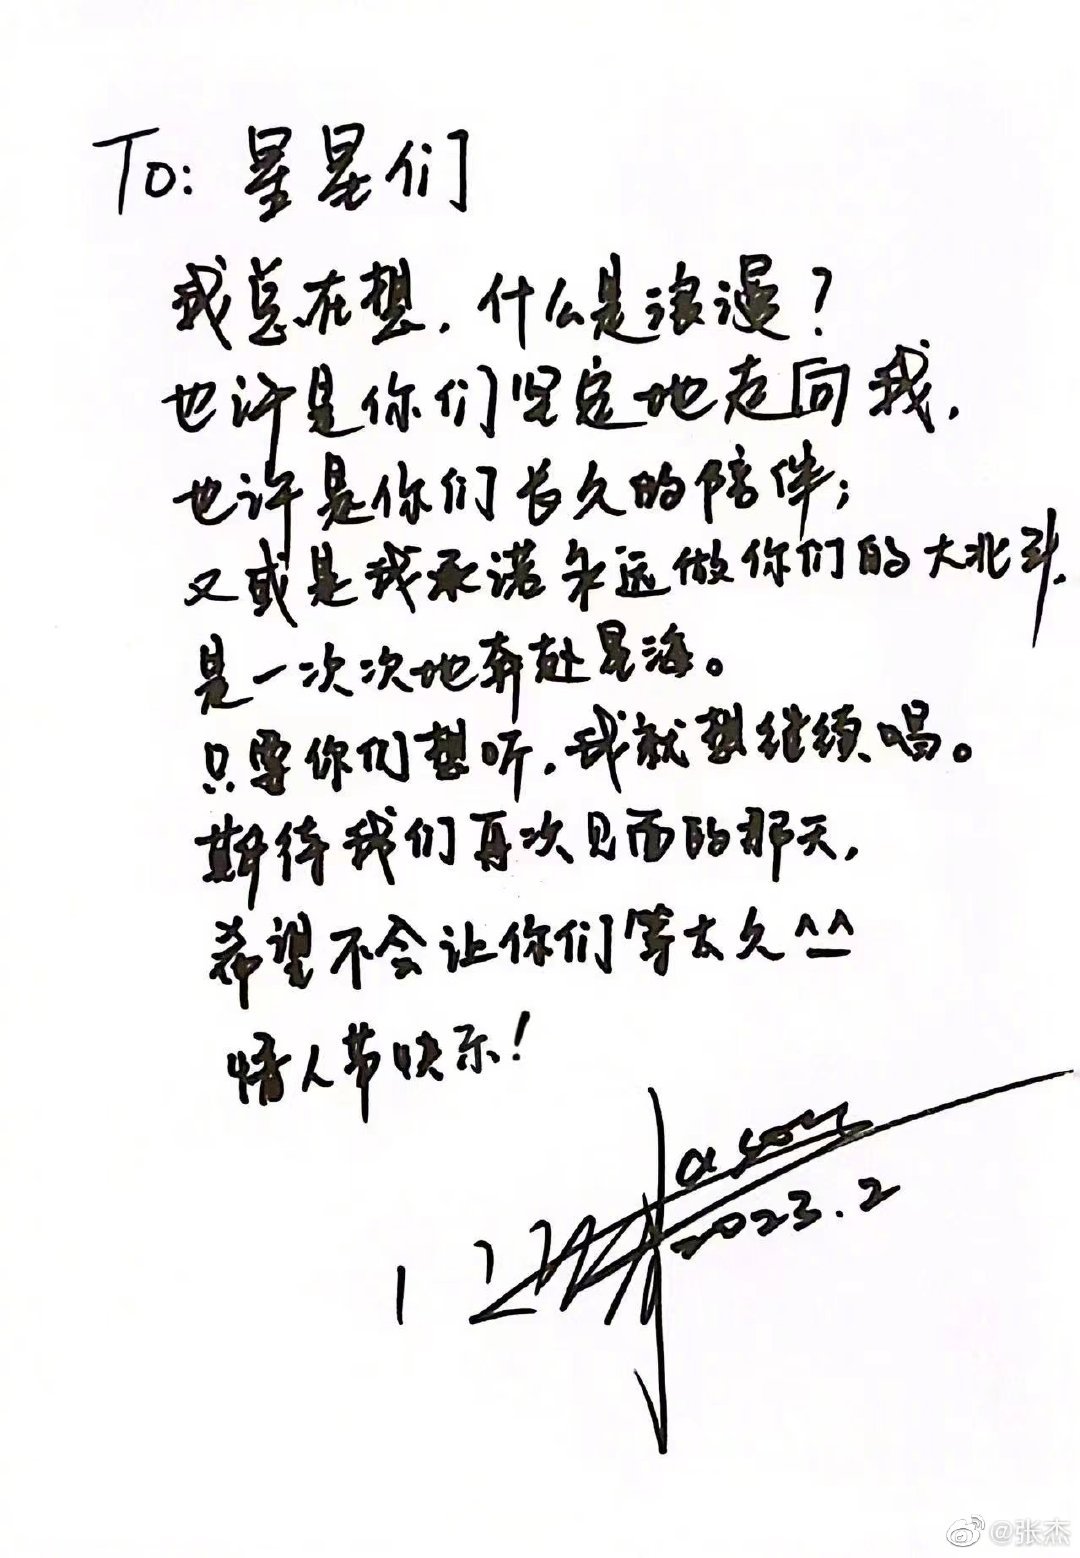 To: 星星们
我总在想，什么是浪漫？
也许是你们坚定地走向我，
也许是你们长久的陪伴；
又或是我承诺永远做你们的大北斗，
是一次次地奔赴星海。
只要你们想听，我就想继续唱。
期待我们再次见面的那天，
希望不会让你们等太久^_^
情人节快乐！
Jason
2023.2
@张杰